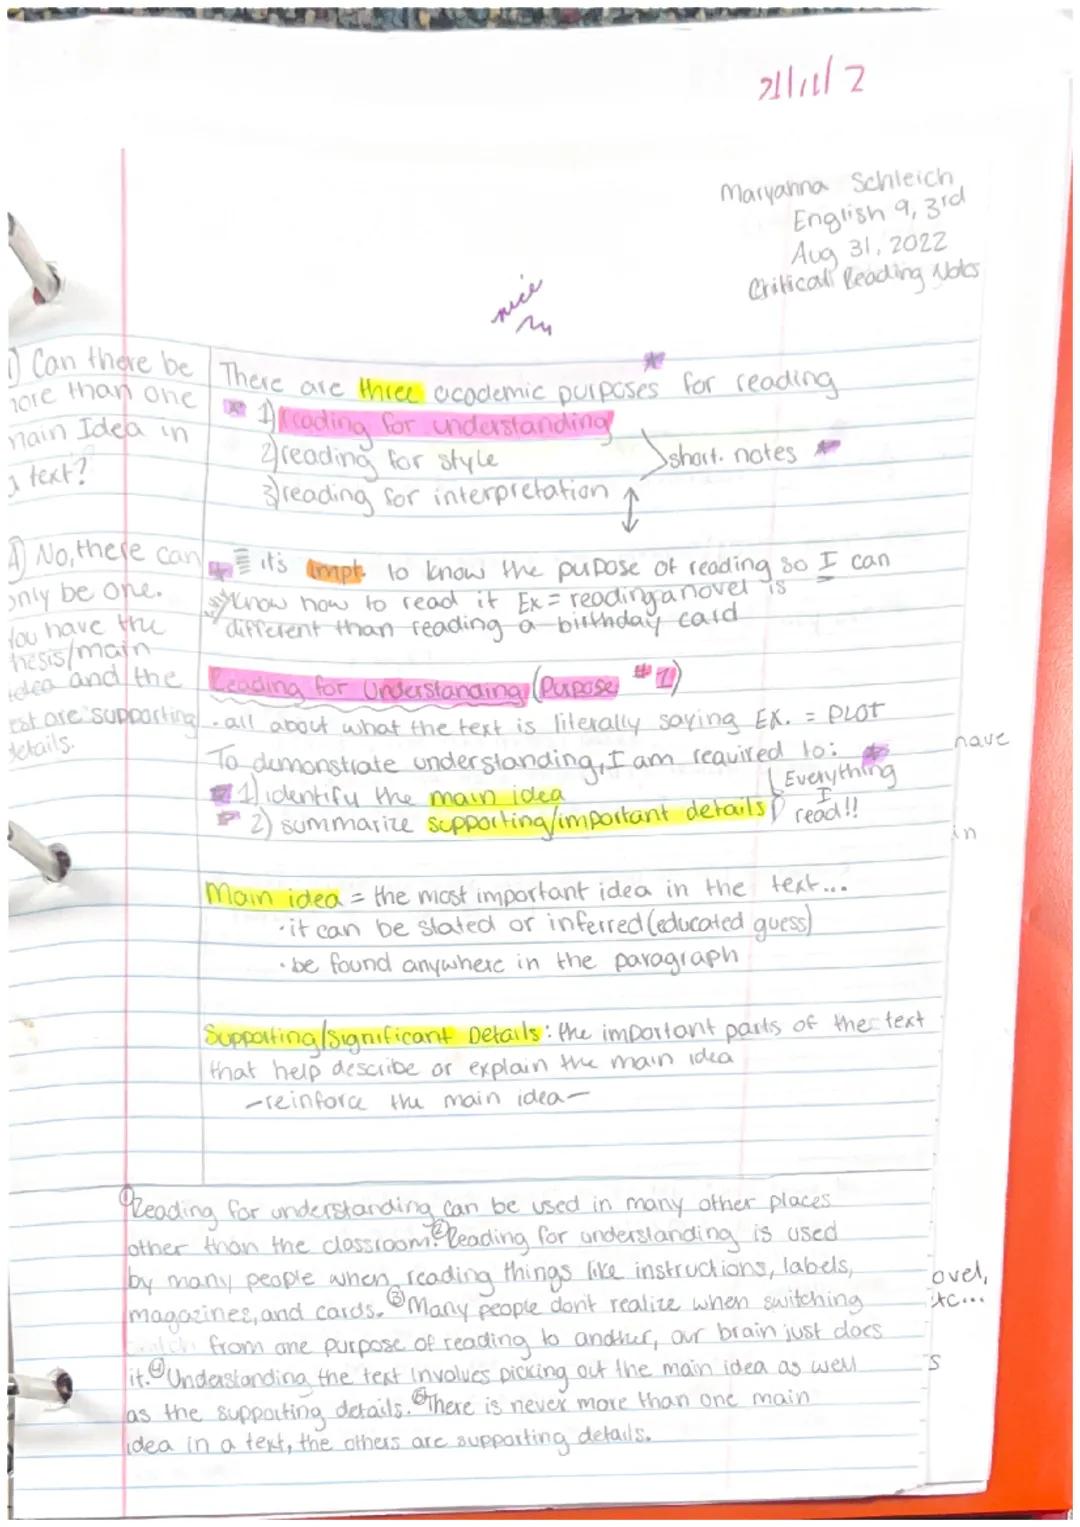 Maryanna Schleich
English 9, 3rd
Aug 31, 2022
Critical Reading Notes
nice
Can there be
more than one
main Idea in
a text?
A) No, there can
only be one.
You have the
thesis/main
idea and the
rest are supporting
details.
There are three academic purposes for reading
1) reading for understanding
2) reading for style
3) reading for interpretation
short. notes
it's impt. to know the purpose of reading so I can
know how to read it Ex = reading a novel is
different than reading a birthday card
Reading for Understanding (Purpose #1)
- all about what the text is literally saying EX. = PLOT
To demonstrate understanding, I am required to:
1) identify the main idea
2) summarize supporting/important details
Everything
I
read!!
Main idea = the most important idea in the text...
• it can be stated or inferred (educated guess)
• be found anywhere in the paragraph
Supporting/Significant Details: the important parts of the text
that help describe or explain the main idea
- reinforce the main idea -
① Reading for understanding can be used in many other places
other than the classroom. ② Reading for understanding is used
by many people when reading things like instructions, labels,
magazines, and cards. ③ Many people dont realize when switching
from one purpose of reading to another, our brain just does
it. ④ Understanding the text involves picking out the main idea as well
as the supporting details. ⑤ There is never more than one main
idea in a text, the others are supporting details.
have
in
ovel,
etc...
s